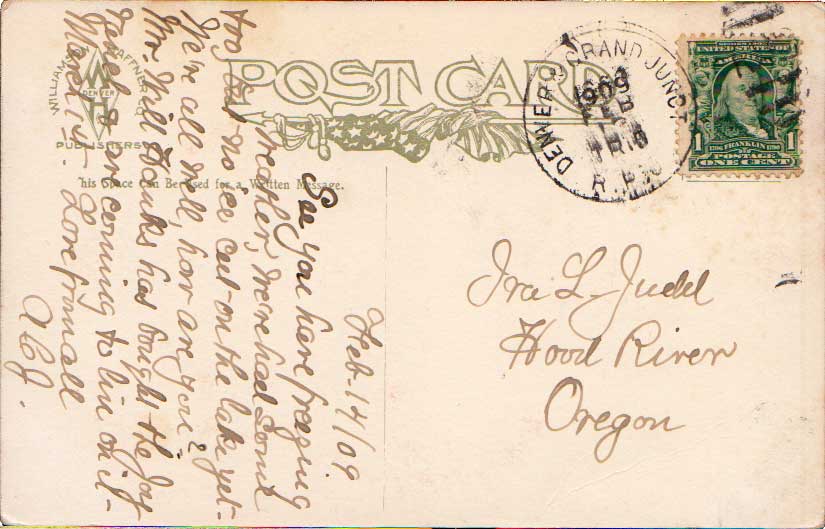 POST CARD
WILLIAMSON HAFFNER CO
W H
DENVER
PUBLISHERS
This Space Can Be Used for a Written Message.
DENVER & GRAND JUNCT
1909
FEB
TR 16
R. P.
SERIES 1902
UNITED STATES OF
AMERICA
1706 FRANKLIN 1790
1 POSTAGE 1
ONE CENT
Feb-14/09
See you have freezing
weather, were had some
too but no ice cut on the lake yet-
We're all well, how are you?
Mr. Will Hanks has bought the Jay
Janel & are coming to live on it-
March 1st. Love from all
Ira L. Judd
Hood River
Oregon